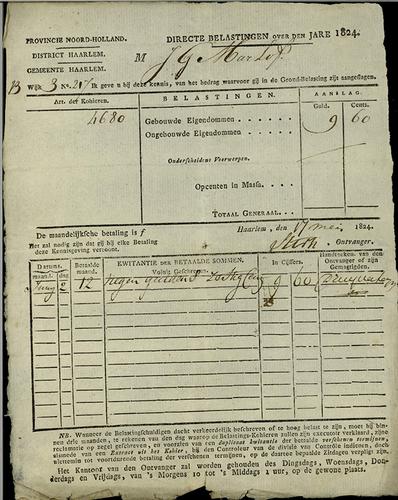 PROVINCIE NOORD-HOLLAND. DIRECTE BELASTINGEN OVER DEN JARE 1824.
DISTRICT HAARLEM.
GEMEENTE HAARLEM. M J G
B Wijk 3 No. 217 Ik geve u bij deze kennis, van het bedrag waarvoor gij in de Grond-Belasting zijt aangeslagen.
Art. der Kohieren. BELASTINGEN. AANSLAG.
Guld. Cents.
4680 Gebouwde Eigendommen . . . . . . 9 60
Ongebouwde Eigendommen . . . . .
Onderscheidene Voorwerpen.
Opcenten in Massa. . . . .
TOTAAL GENERAAL. . . .
De maandelijksche betaling is f Haarlem, den 17 mei 1824.
Het zal nodig zijn dat gij bij elke Betaling
deze Kennisgeving vertoont. Ontvanger.
DATUMS. Betaalde maand. KWITANTIE DER BETAALDE SOMMEN. In Cijffers. Handteeken. van den Ontvanger of zijn Gemagtigden.
maand. dag Voluit Geschreven.
2 12 negen guldens 9 60
NB. Wanneer de Belastingschuldigen dacht verkeerdelijk beschreven of te hoog belast te zijn, moet hij binnen drie maanden, te rekenen van den dag waarop de Belastings-Kohieren zullen zijn executoir verklaard, zijne
reclamatie op zegel geschreven, en voorzien van een duplicaat kwitantie der betaalde verschenen termijnen,
alsmede van een Extract uit het Kohier, bij den Controleur van de divisie van Contrôle indienen, dit
uitstel van voortdurende betaling der verschenen termijnen, op de daartoe bepaalde Zitdagen verpligt zijn.
Het Kantoor van den Ontvanger zal worden gehouden des Dingsdags, Woensdags, Donderdags en Vrijdags, van 's Morgens 10 tot 's Middags 1 uur, op de gewone plaats.